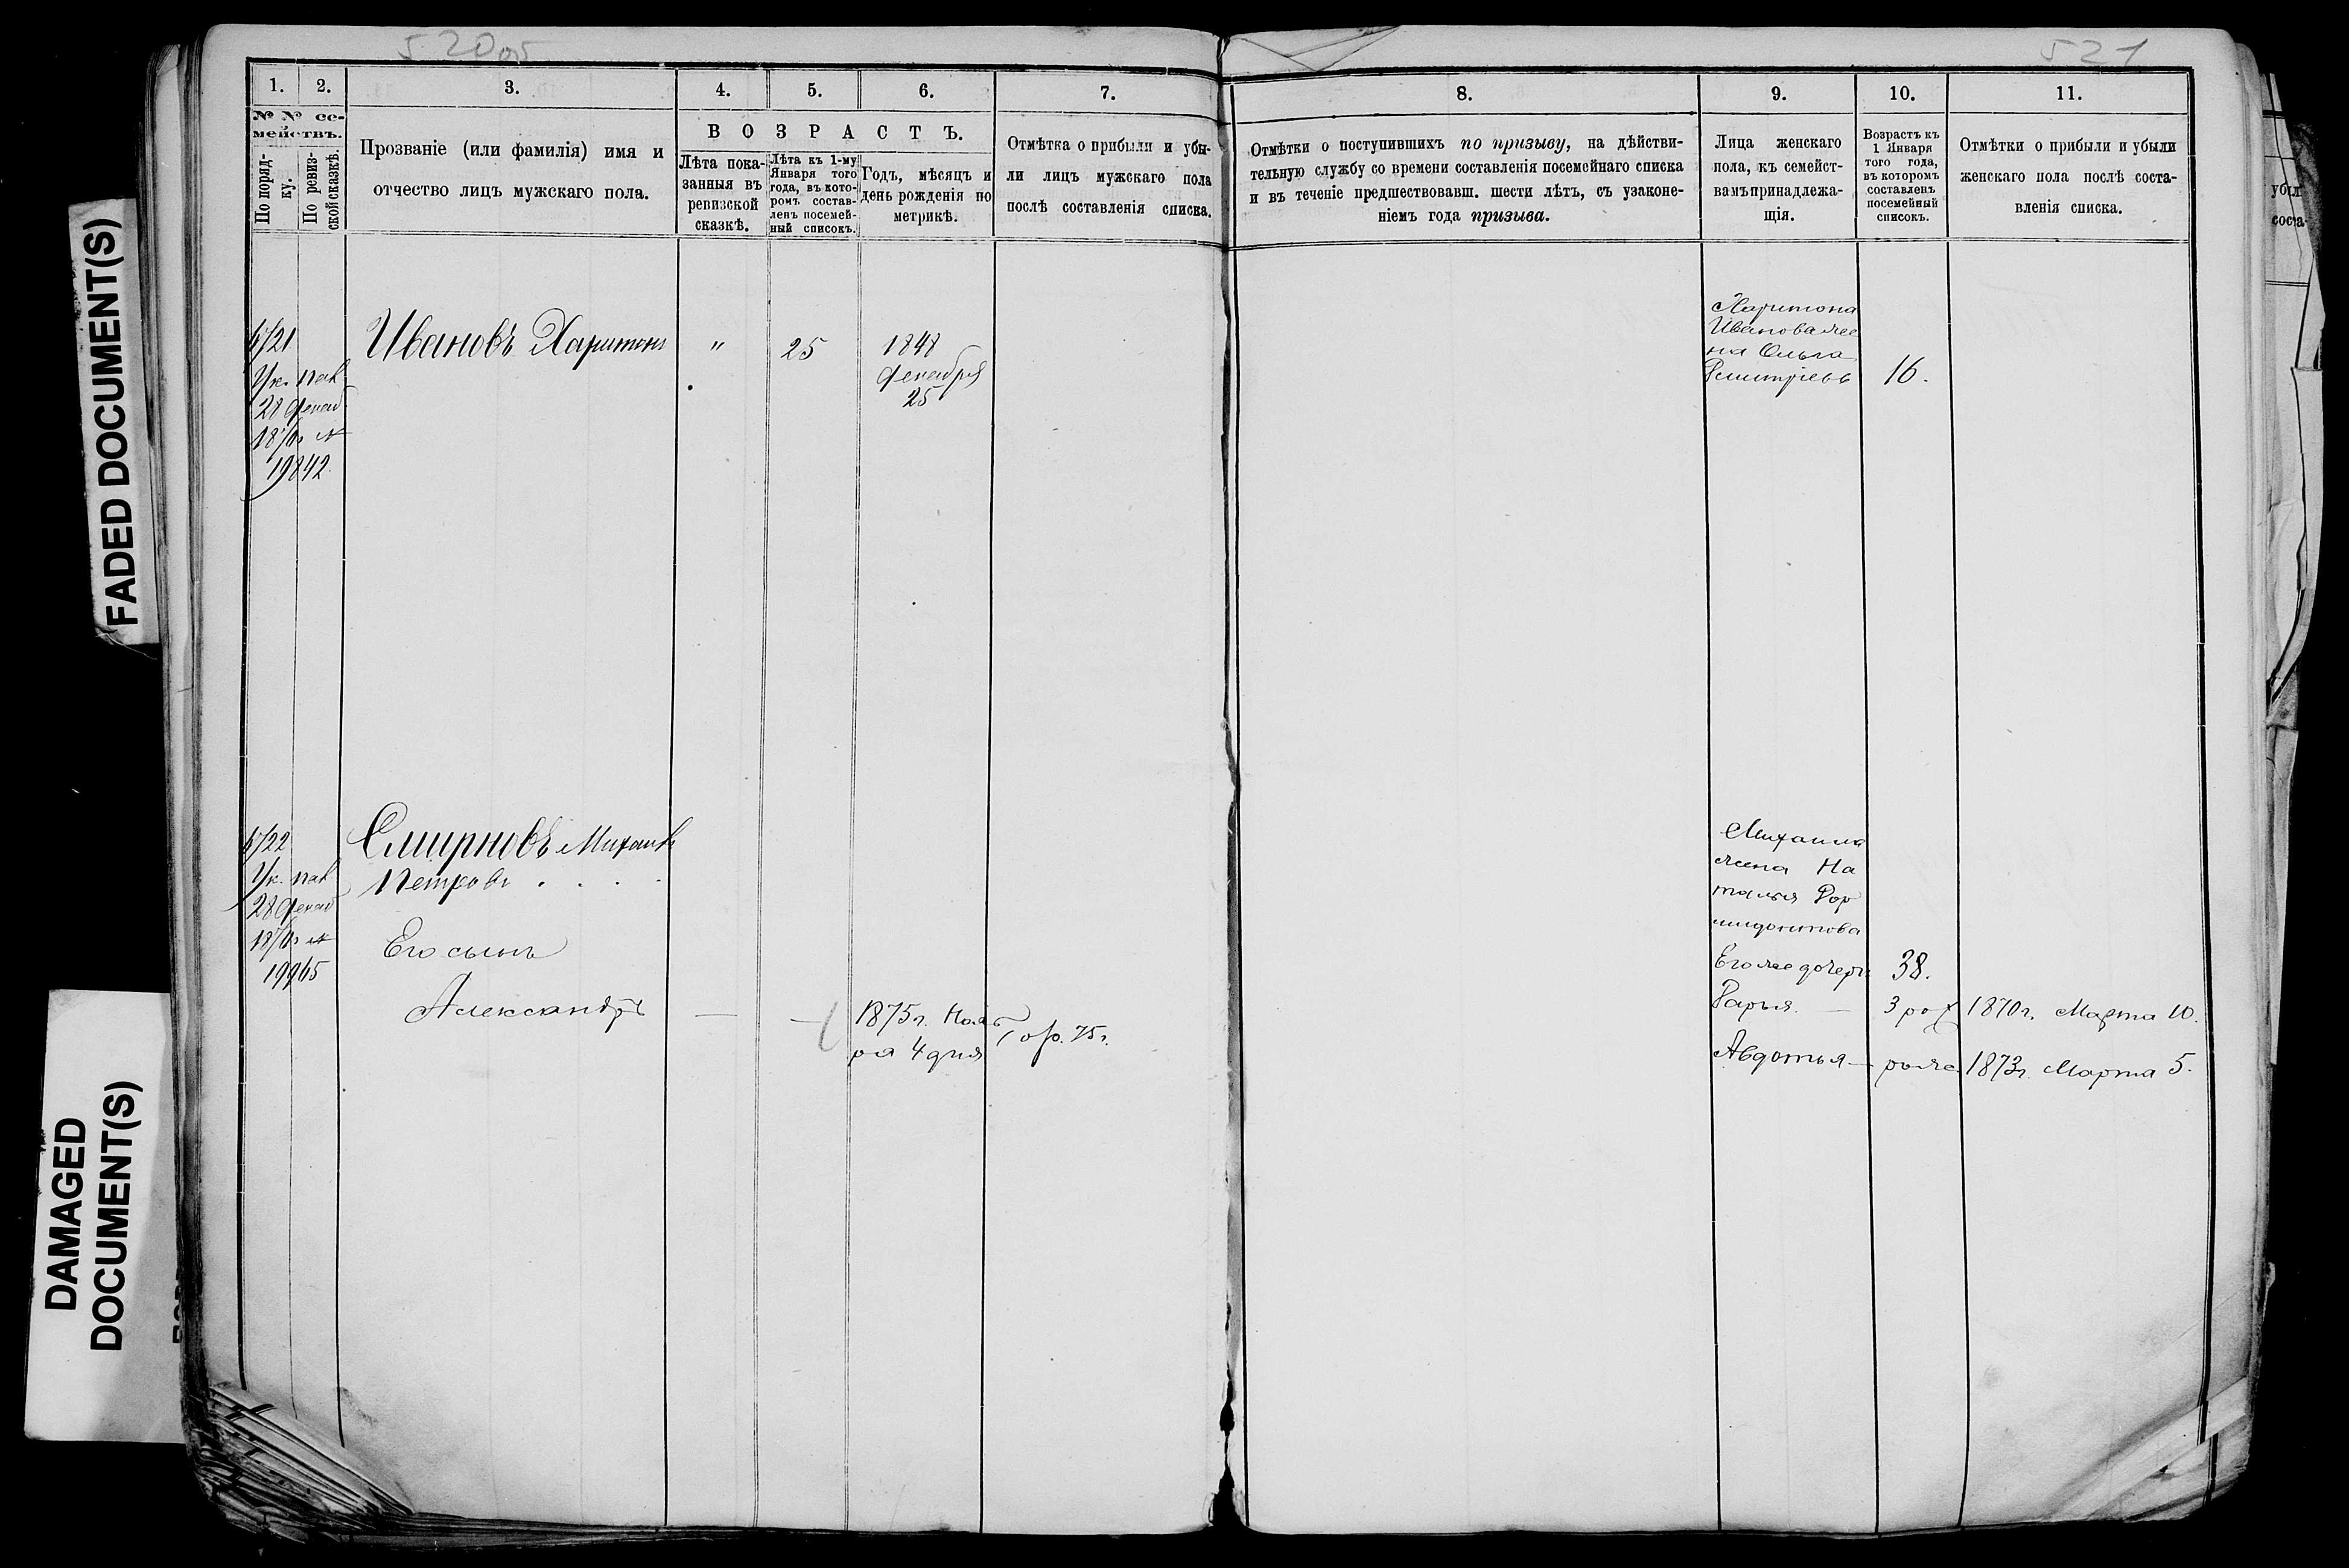 FADED DOCUMENT(S)
DAMAGED
DOCUMENT(S)
520об
1.
2.
3.
4.
5.
6.
7.
№ № се-
мействъ.
По поряд-
ку.
По ревиз-
ской сказкѣ.
Прозваніе (или фамилія) имя и
отчество лицъ мужскаго пола.
ВОЗРАСТЪ.
Лѣта пока-
занныя въ
ревизской
сказкѣ.
Лѣта къ 1-му
Января того
года, въ кото-
ромъ состав-
ленъ посемей-
ный списокъ.
Годъ, мѣсяцъ и
день рожденія по
метрикѣ.
Отмѣтка о прибыли и убы-
ли лицъ мужскаго пола
послѣ составленія списка.
Ивановъ Харитонъ
"
25
1848
декабря
25
Ук. пал
28 декаб
19842
Смирновъ Михаилъ
Петровъ . . . .
Ук. пал
28 декаб
19965
Его сынъ
Александръ
—
—
1875г. Нояб
ря 4 дня
75г.
521
8.
9.
10.
11.
Отмѣтки о поступившихъ по призыву, на дѣйстви-
тельную службу со времени составленія посемейнаго списка
и въ теченіе предшествовавш. шести лѣтъ, съ узаконе-
ніемъ года призыва.
Лица женскаго
пола, къ семейст-
вамъ принадлежа-
щія.
Возрастъ къ
1 Января
того года,
въ которомъ
составленъ
посемейный
списокъ.
Отмѣтки о прибыли и убыли
женскаго пола послѣ соста-
вленія списка.
Харитона
Иванова же
на Ольга
Дмитріевъ
16.
Михаила
жена На
талья Дор
мидонтова
38.
Его же дочери
Дарья. —
3
1870г. Марта 10.
Авдотья —
1873г. Марта 5.
убыл
соста-